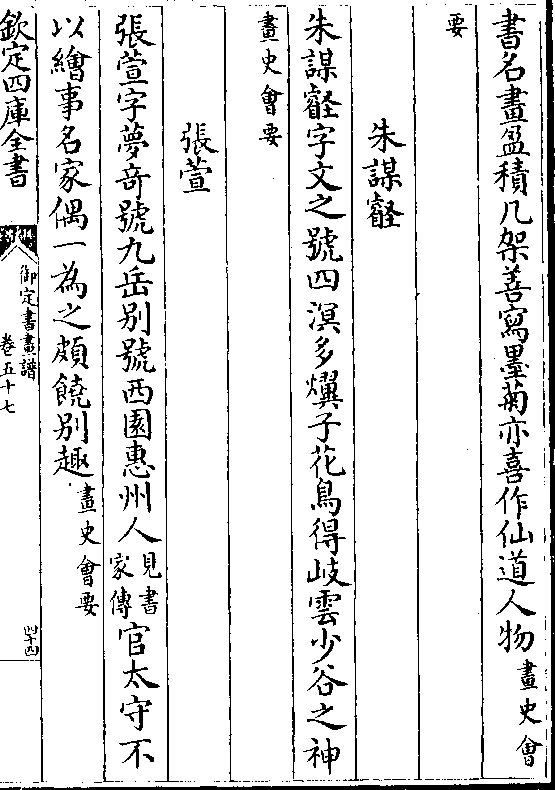 書名畫盈積几架善寫墨菊亦喜作仙道人物畫史會
要
朱謀㙔
朱謀㙔字文之號四溟多爟子花鳥得岐雲少谷之神
畫史會要
張萱
張萱字夢竒號九岳别號西園惠州人見書家傳官太守不
以繪事名家偶一為之頗饒别趣畫史會要
欽定四庫全書
御定書畫譜
卷五十七
四十四